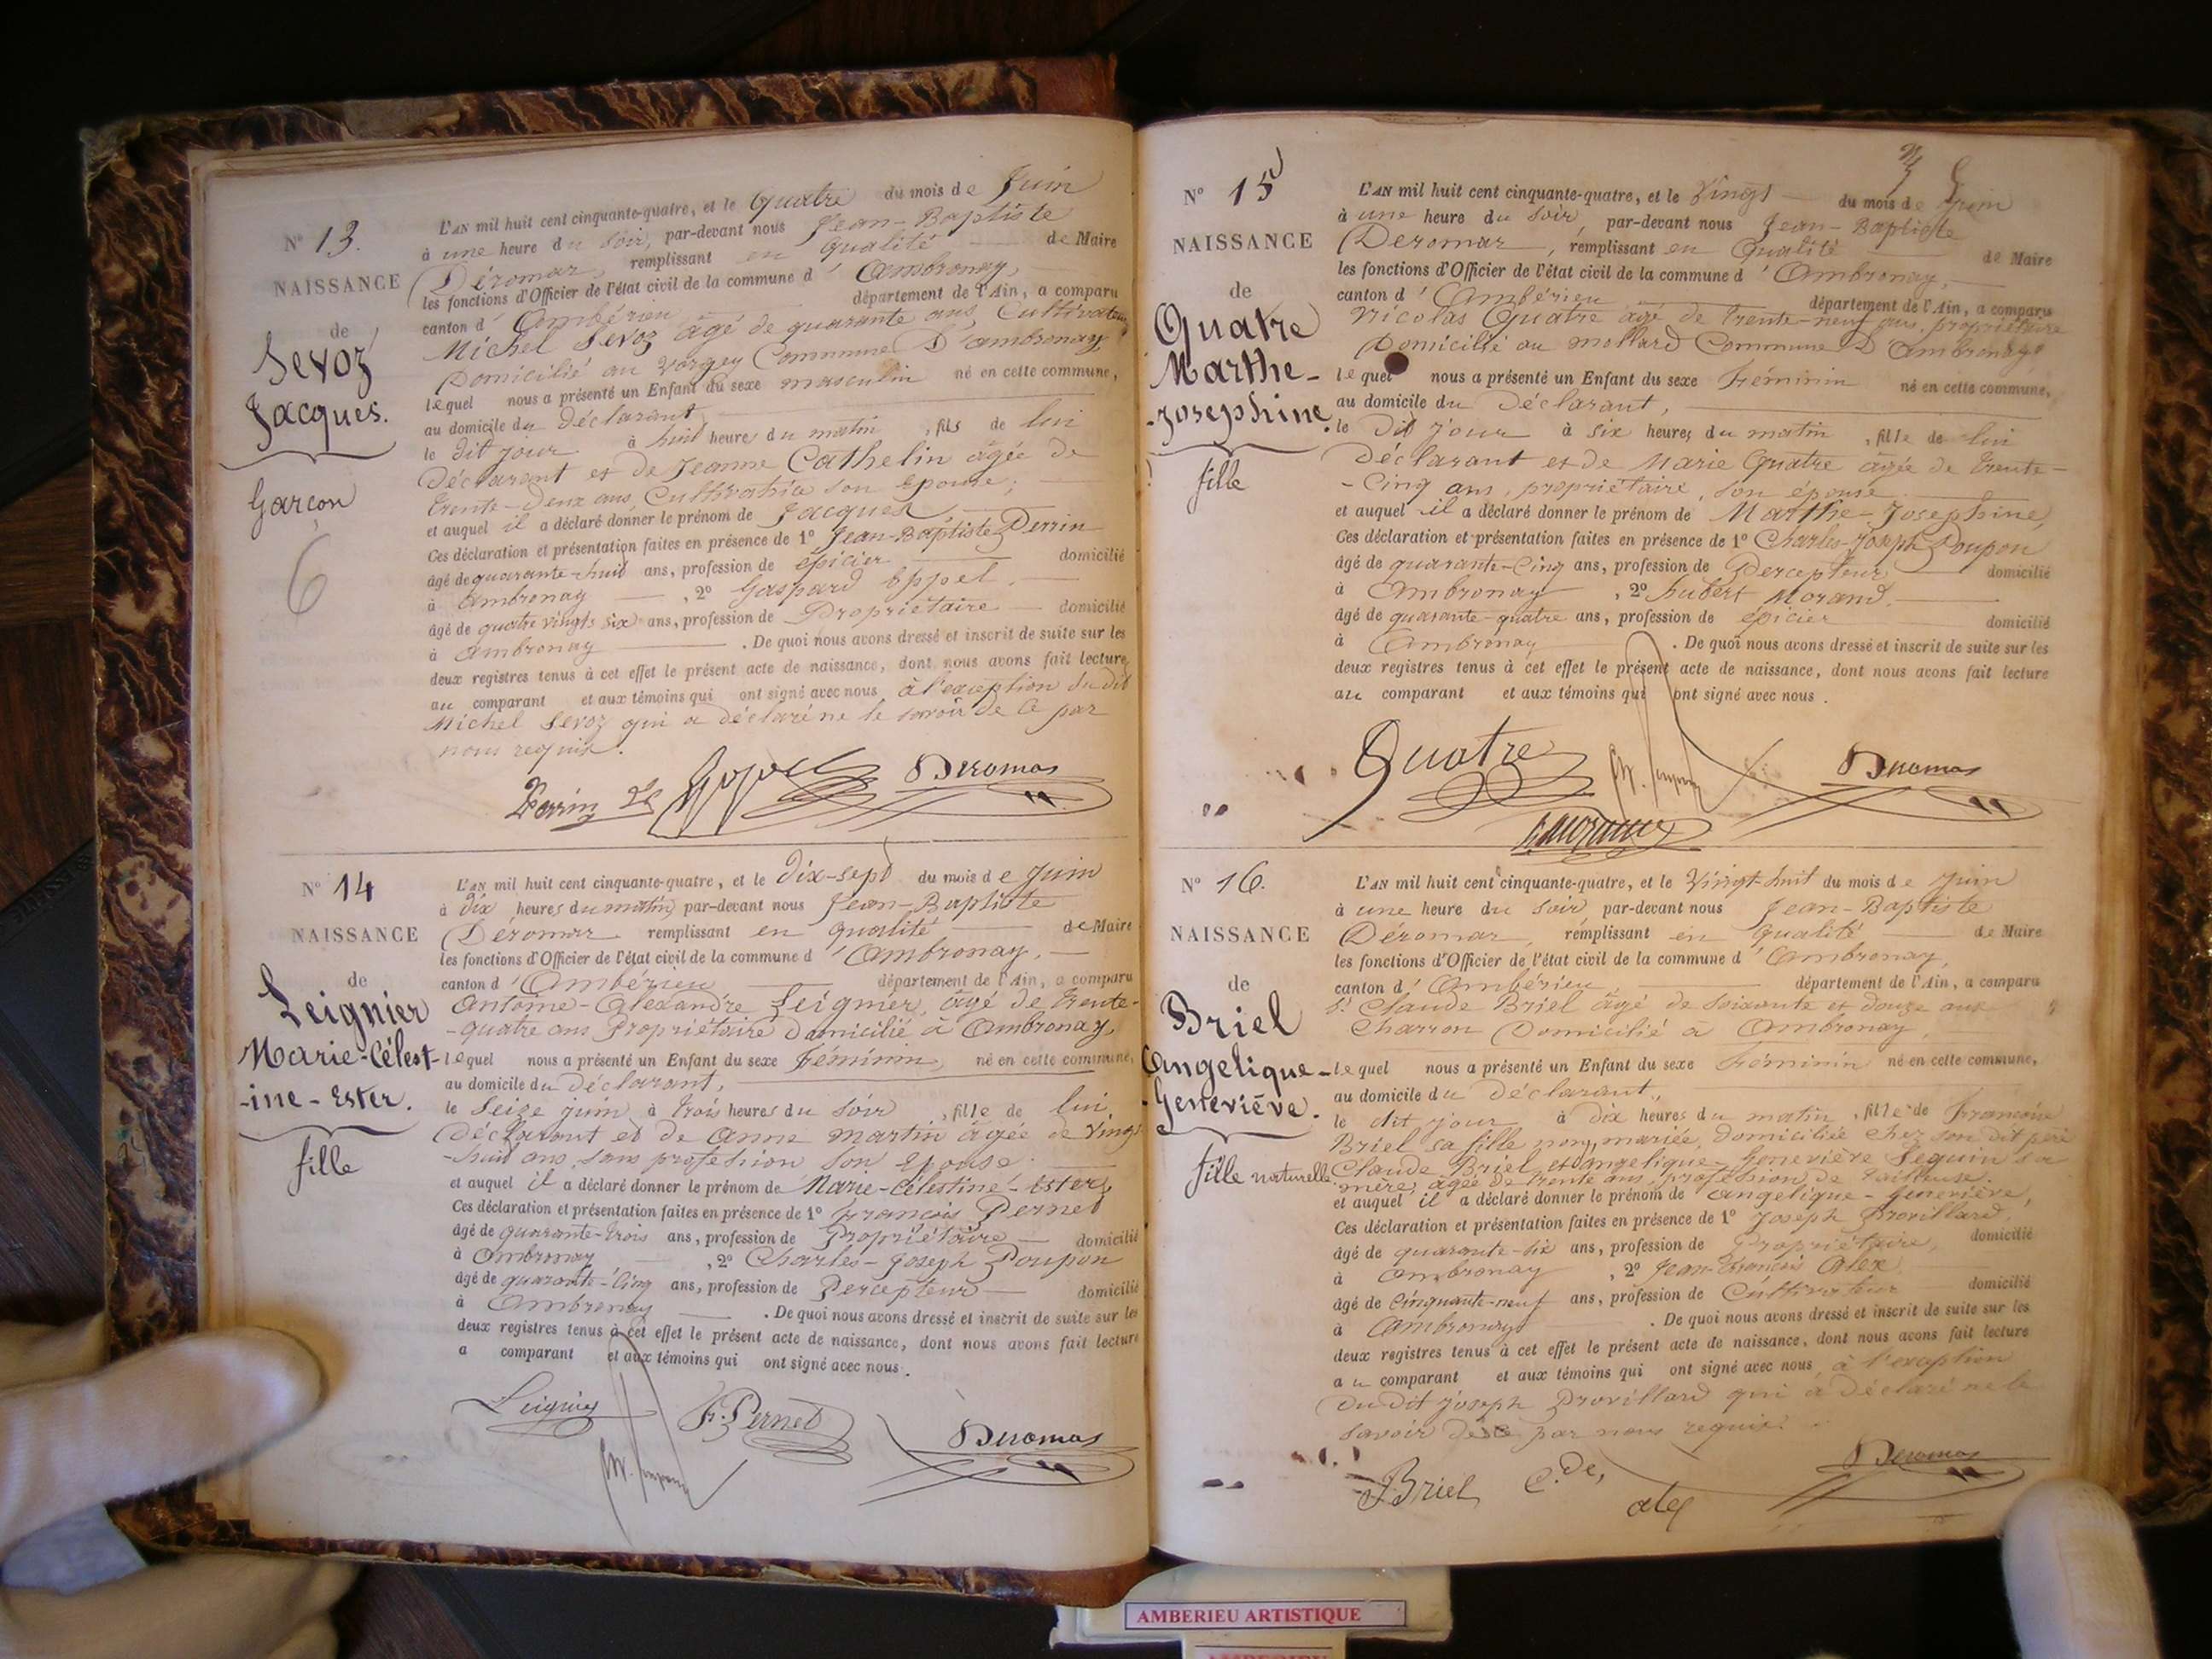 N° 13.
NAISSANCE
de
Sevoz
Jacques.
Garçon
6
L'AN mil huit cent cinquante-quatre, et le Quatre du mois de Juin
à une heure du soir, par-devant nous Jean-Baptiste
Déromas, remplissant en qualité de Maire
les fonctions d'Officier de l'état civil de la commune d'Ambronay,
canton d'Ambérieu département de l'Ain, a comparu
Michel Sevoz âgé de quarante ans, Cultivateur
Domicilié au Vorgey Commune D'ambronay,
lequel nous a présenté un Enfant du sexe masculin né en cette commune,
au domicile du Déclarant,
le dit jour à huit heures du matin, fils de lui
Déclarant et de Jeanne Cathelin âgée de
trente-deux ans, Cultivatrice son Epouse;
et auquel il a déclaré donner le prénom de Jacques
Ces déclaration et présentation faites en présence de 1° Jean-Baptiste Perrin
âgé de quarante-huit ans, profession de épicier domicilié
à Ambronay, 2° Gaspard Eppel,
âgé de quatre vingts six ans, profession de Propriétaire domicilié
à Ambronay. De quoi nous avons dressé et inscrit de suite sur les
deux registres tenus à cet effet le présent acte de naissance, dont nous avons fait lecture
au comparant et aux témoins qui ont signé avec nous, à l'exception du dit
Michel Sevoz qui a déclaré ne le savoir de ce par
nous requis.
Perrin Deromas
N° 14
NAISSANCE
de
Leignier
Marie-Célest-
-ine-Ester.
fille
L'AN mil huit cent cinquante-quatre, et le Dix-sept du mois de Juin
à Dix heures du matin, par-devant nous Jean-Baptiste
Déromas remplissant en qualité de Maire
les fonctions d'Officier de l'état civil de la commune d'Ambronay,
canton d'Ambérieu département de l'Ain, a comparu
Antoine-Alexandre Leignier, âgé de trente-
-quatre ans Propriétaire domicilié à Ambronay,
lequel nous a présenté un Enfant du sexe féminin, né en cette commune,
au domicile du Déclarant,
le Seize juin à trois heures du soir, fille de lui,
Déclarant et de Anne Martin âgée de vingt
-huit ans, sans profession son Epouse.
et auquel il a déclaré donner le prénom de Marie-Célestine-Ester,
Ces déclaration et présentation faites en présence de 1° François Pernet
âgé de quarante-trois ans, profession de Propriétaire domicilié
à Ambronay, 2° Charles-Joseph Poupon
âgé de quarante-cinq ans, profession de Percepteur domicilié
à Ambronay. De quoi nous avons dressé et inscrit de suite sur les
deux registres tenus à cet effet le présent acte de naissance, dont nous avons fait lecture
a comparant et aux témoins qui ont signé avec nous.
Leignier F. Pernet Deromas
N° 15
NAISSANCE
de
Quatre
Marthe-
-Josephine.
fille
L'AN mil huit cent cinquante-quatre, et le Vingt du mois de Juin
à une heure du soir, par-devant nous Jean-Baptiste
Deromas, remplissant en Qualité de Maire
les fonctions d'Officier de l'état civil de la commune d'Ambronay,
canton d'Ambérieu département de l'Ain, a comparu
Nicolas Quatre âgé de trente-neuf ans, propriétaire
Domicilié au mollard Commune D'Ambronay,
lequel nous a présenté un Enfant du sexe féminin né en cette commune,
au domicile du Déclarant,
le Dit jour à six heures du matin, fille de lui
Déclarant et de Marie Quatre âgée de trente-
-Cinq ans, propriétaire, son épouse
et auquel il a déclaré donner le prénom de Marthe-Josephine,
Ces déclaration et présentation faites en présence de 1° Charles-Joseph Poupon
âgé de quarante-Cinq ans, profession de Percepteur domicilié
à Ambronay, 2° hubert Morand.
âgé de quarante-quatre ans, profession de épicier domicilié
à Ambronay. De quoi nous avons dressé et inscrit de suite sur les
deux registres tenus à cet effet le présent acte de naissance, dont nous avons fait lecture
au comparant et aux témoins qui ont signé avec nous.
Quatre Deromas
N° 16.
NAISSANCE
de
Briel
Angelique-
-Geneviéve.
fille naturelle.
L'AN mil huit cent cinquante-quatre, et le Vingt-huit du mois de Juin
à une heure du soir, par-devant nous Jean-Baptiste
Déromas, remplissant en qualité de Maire
les fonctions d'Officier de l'état civil de la commune d'Ambronay,
canton d'Ambérieu département de l'Ain, a comparu
Sr Claude Briel âgé de soixante et douze ans
Charron Domicilié à Ambronay,
lequel nous a présenté un Enfant du sexe féminin né en cette commune,
au domicile du Déclarant,
le dit jour à dix heures du matin, fille de françoise
Briel sa fille non mariée, domiciliée chez son dit père
Claude Briel, et d'angelique-Geneviève Seguin sa
mère, âgée de trente ans, profession de tailleuse.
et auquel il a déclaré donner le prénom de Angelique-Geneviève,
Ces déclaration et présentation faites en présence de 1° Joseph Provillard,
âgé de quarante-six ans, profession de Propriétaire, domicilié
à Ambronay, 2° Jean-François Alex
âgé de Cinquante-neuf ans, profession de Cultivateur domicilié
à Ambronay. De quoi nous avons dressé et inscrit de suite sur les
deux registres tenus à cet effet le présent acte de naissance, dont nous avons fait lecture
au comparant et aux témoins qui ont signé avec nous, à l'exception
du dit Joseph Provillard qui a déclaré ne le
savoir de ce par nous requis.
Briel C.de, alex Deromas
AMBERIEU ARTISTIQUE
AMBERIEU